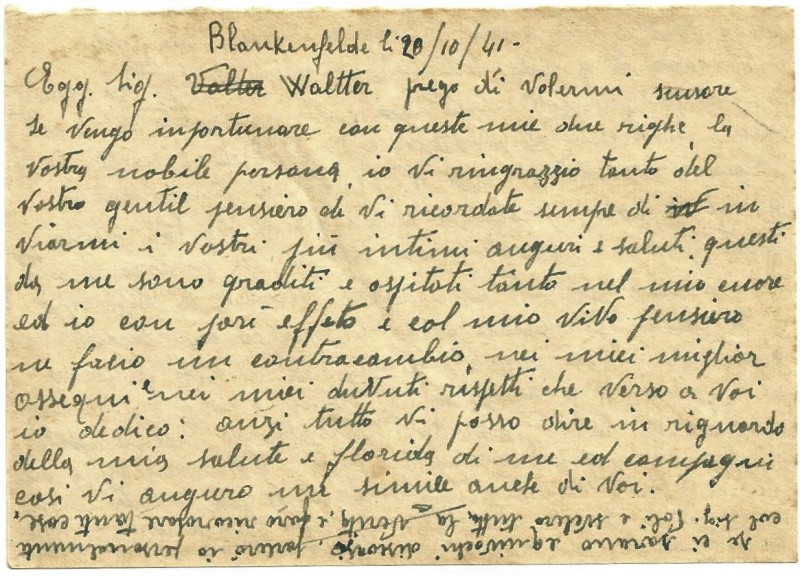 Blankenfelde li 20/10/41-
Egg. Sig. Valter Waltter prego di volermi scusore
se vengo inportunare con queste mie due righe, la
vostra nobile persona, io vi ringrazzio tanto del
vostro gentil pensiero di Vi ricordate sempre di in
viarmi i vostri più intimi auguri e saluti, questi
da me sono graditi e ospitati tanto nel mio cuore
ed io con pari effeto e col mio vivo pensiero
ne facio un contracambio, nei miei miglior
ossequi e nei miei duvuti rispetti che verso a Voi
io dedico: anzi tutto vi posso dire in riguardo
della mia salute e florida di me ed compagni
cosi vi auguro un simile anche di voi.
se ci sarano equivochi discorsi parlerò io personalmente
col sig. Poli e svelerò tutta la verità, e farò ricordare tante cose,